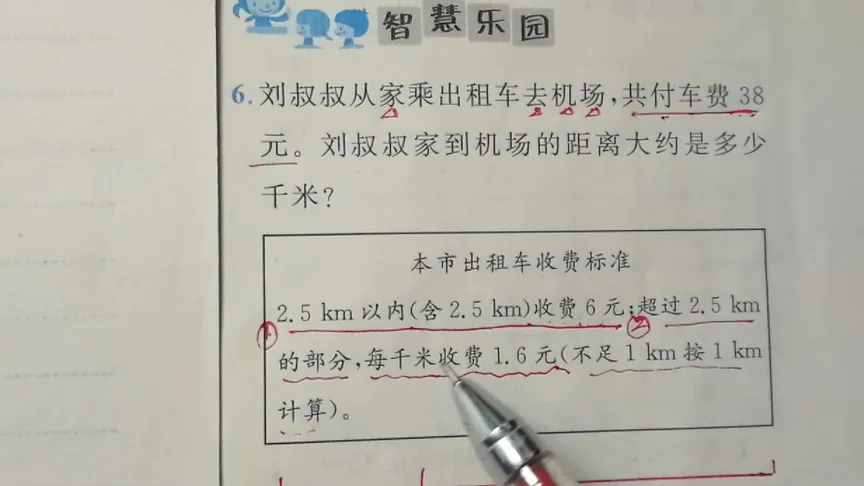 智慧乐园
6.刘叔叔从家乘出租车去机场,共付车费38
元。刘叔叔家到机场的距离大约是多少
千米?
本市出租车收费标准
2.5 km以内(含2.5 km)收费6元;超过2.5 km
的部分,每千米收费1.6元(不足1 km按1 km
计算)。
① ②